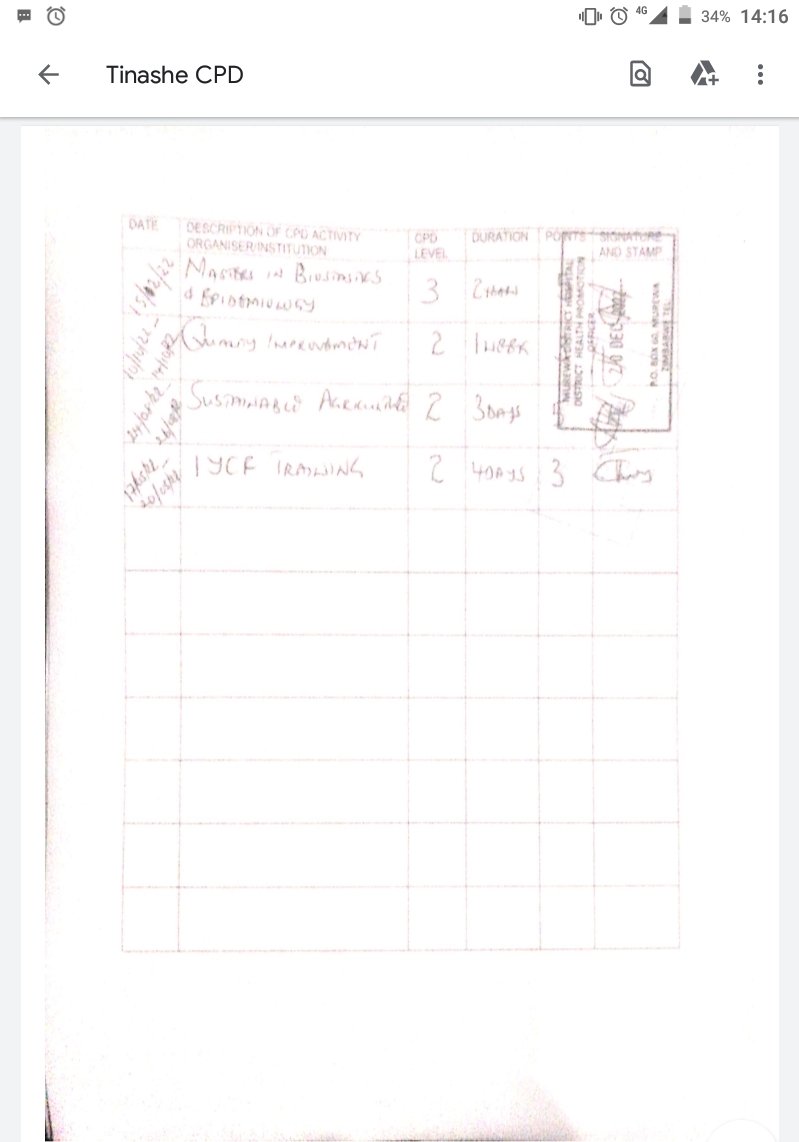 34% 14:16
4G
Tinashe CPD
DATE DESCRIPTION OF CPD ACTIVITY ORGANISER/INSTITUTION CPD LEVEL DURATION POINTS SIGNATURE AND STAMP
15/02/22 MASTERS IN BIOSTATISTICS & EPIDEMIOLOGY 3 2 YEARS
10/10/22 - QUALITY IMPROVEMENT 2 1 WEEK
SUSTAINABLE 2 3 DAYS 5
IYCF TRAINING 2 4 DAYS 3
MUREWA DISTRICT HOSPITAL
DISTRICT HEALTH PROMOTION
OFFICER
20 DEC 2022
P.O. BOX 60, MUREWA
ZIMBABWE TEL